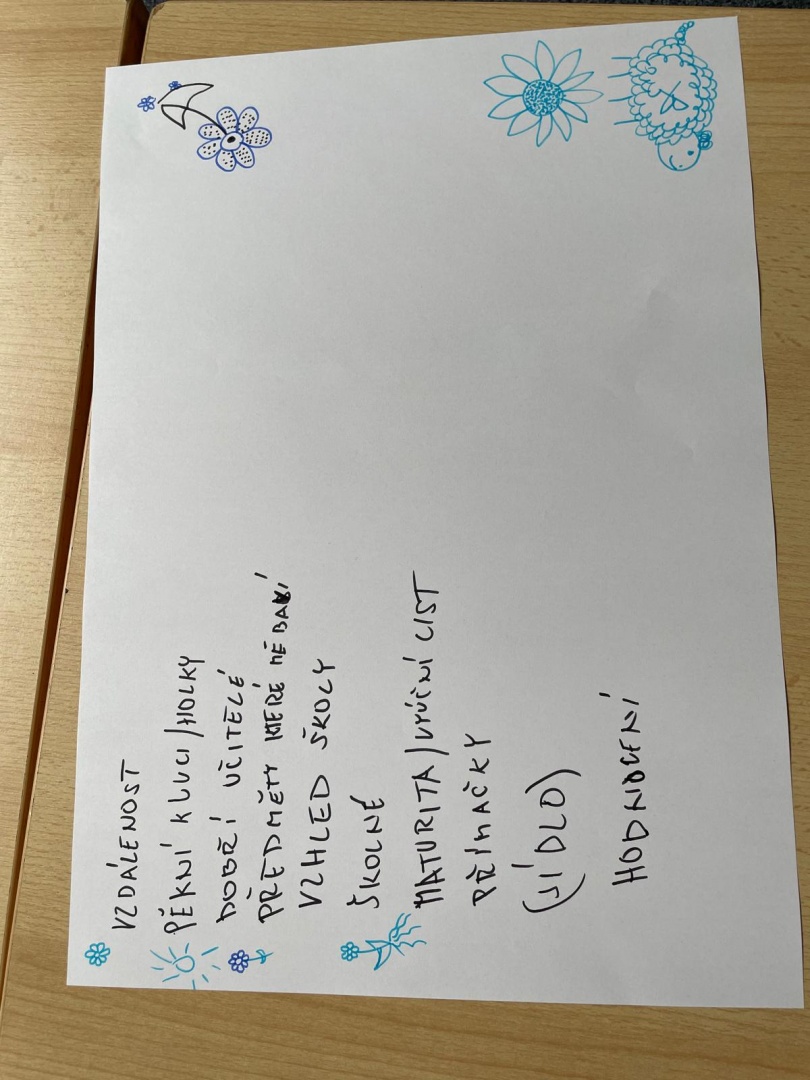 VZDÁLENOST
PĚKNÍ KLUCI/HOLKY
DOBŘÍ UČITELÉ
PŘEDMĚTY KTERÉ MĚ BAVÍ
VZHLED ŠKOLY
ŠKOLNÉ
MATURITA/VÝUČNÍ LIST
PŘÍMAČKY
(JÍDLO)
HODNOCENÍ